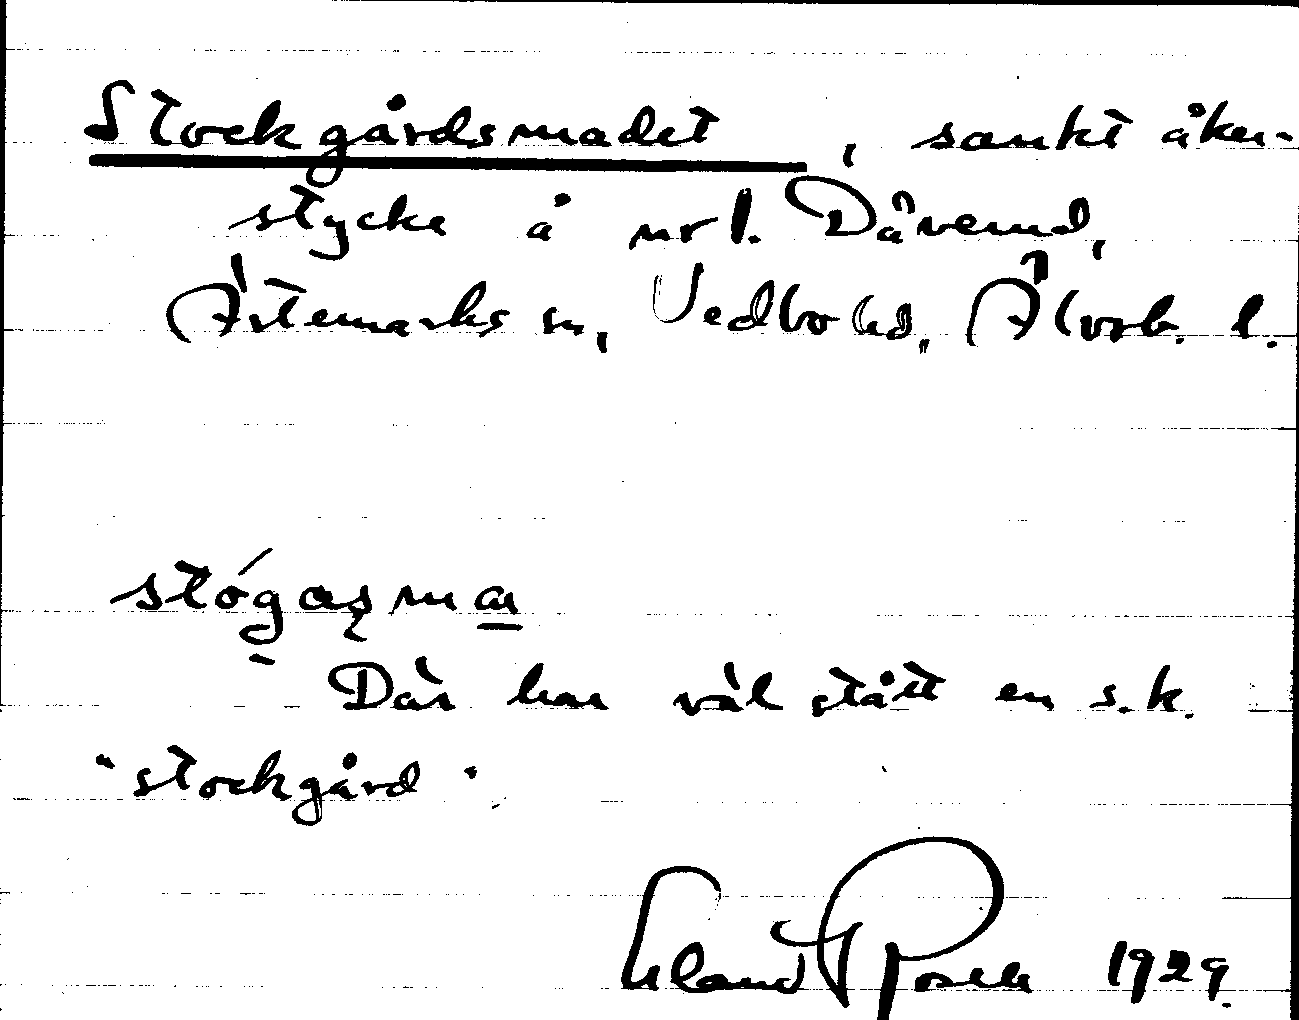 Stockgårdsmadet, sankt åker-
stycke å nr 1. Dåverud,
Ärtemarks sn, Vedbo hd, Älvsb. l.
stógaṣma
Där har väl stått en s.k.
"stockgård".
Erland Rosell 1929.